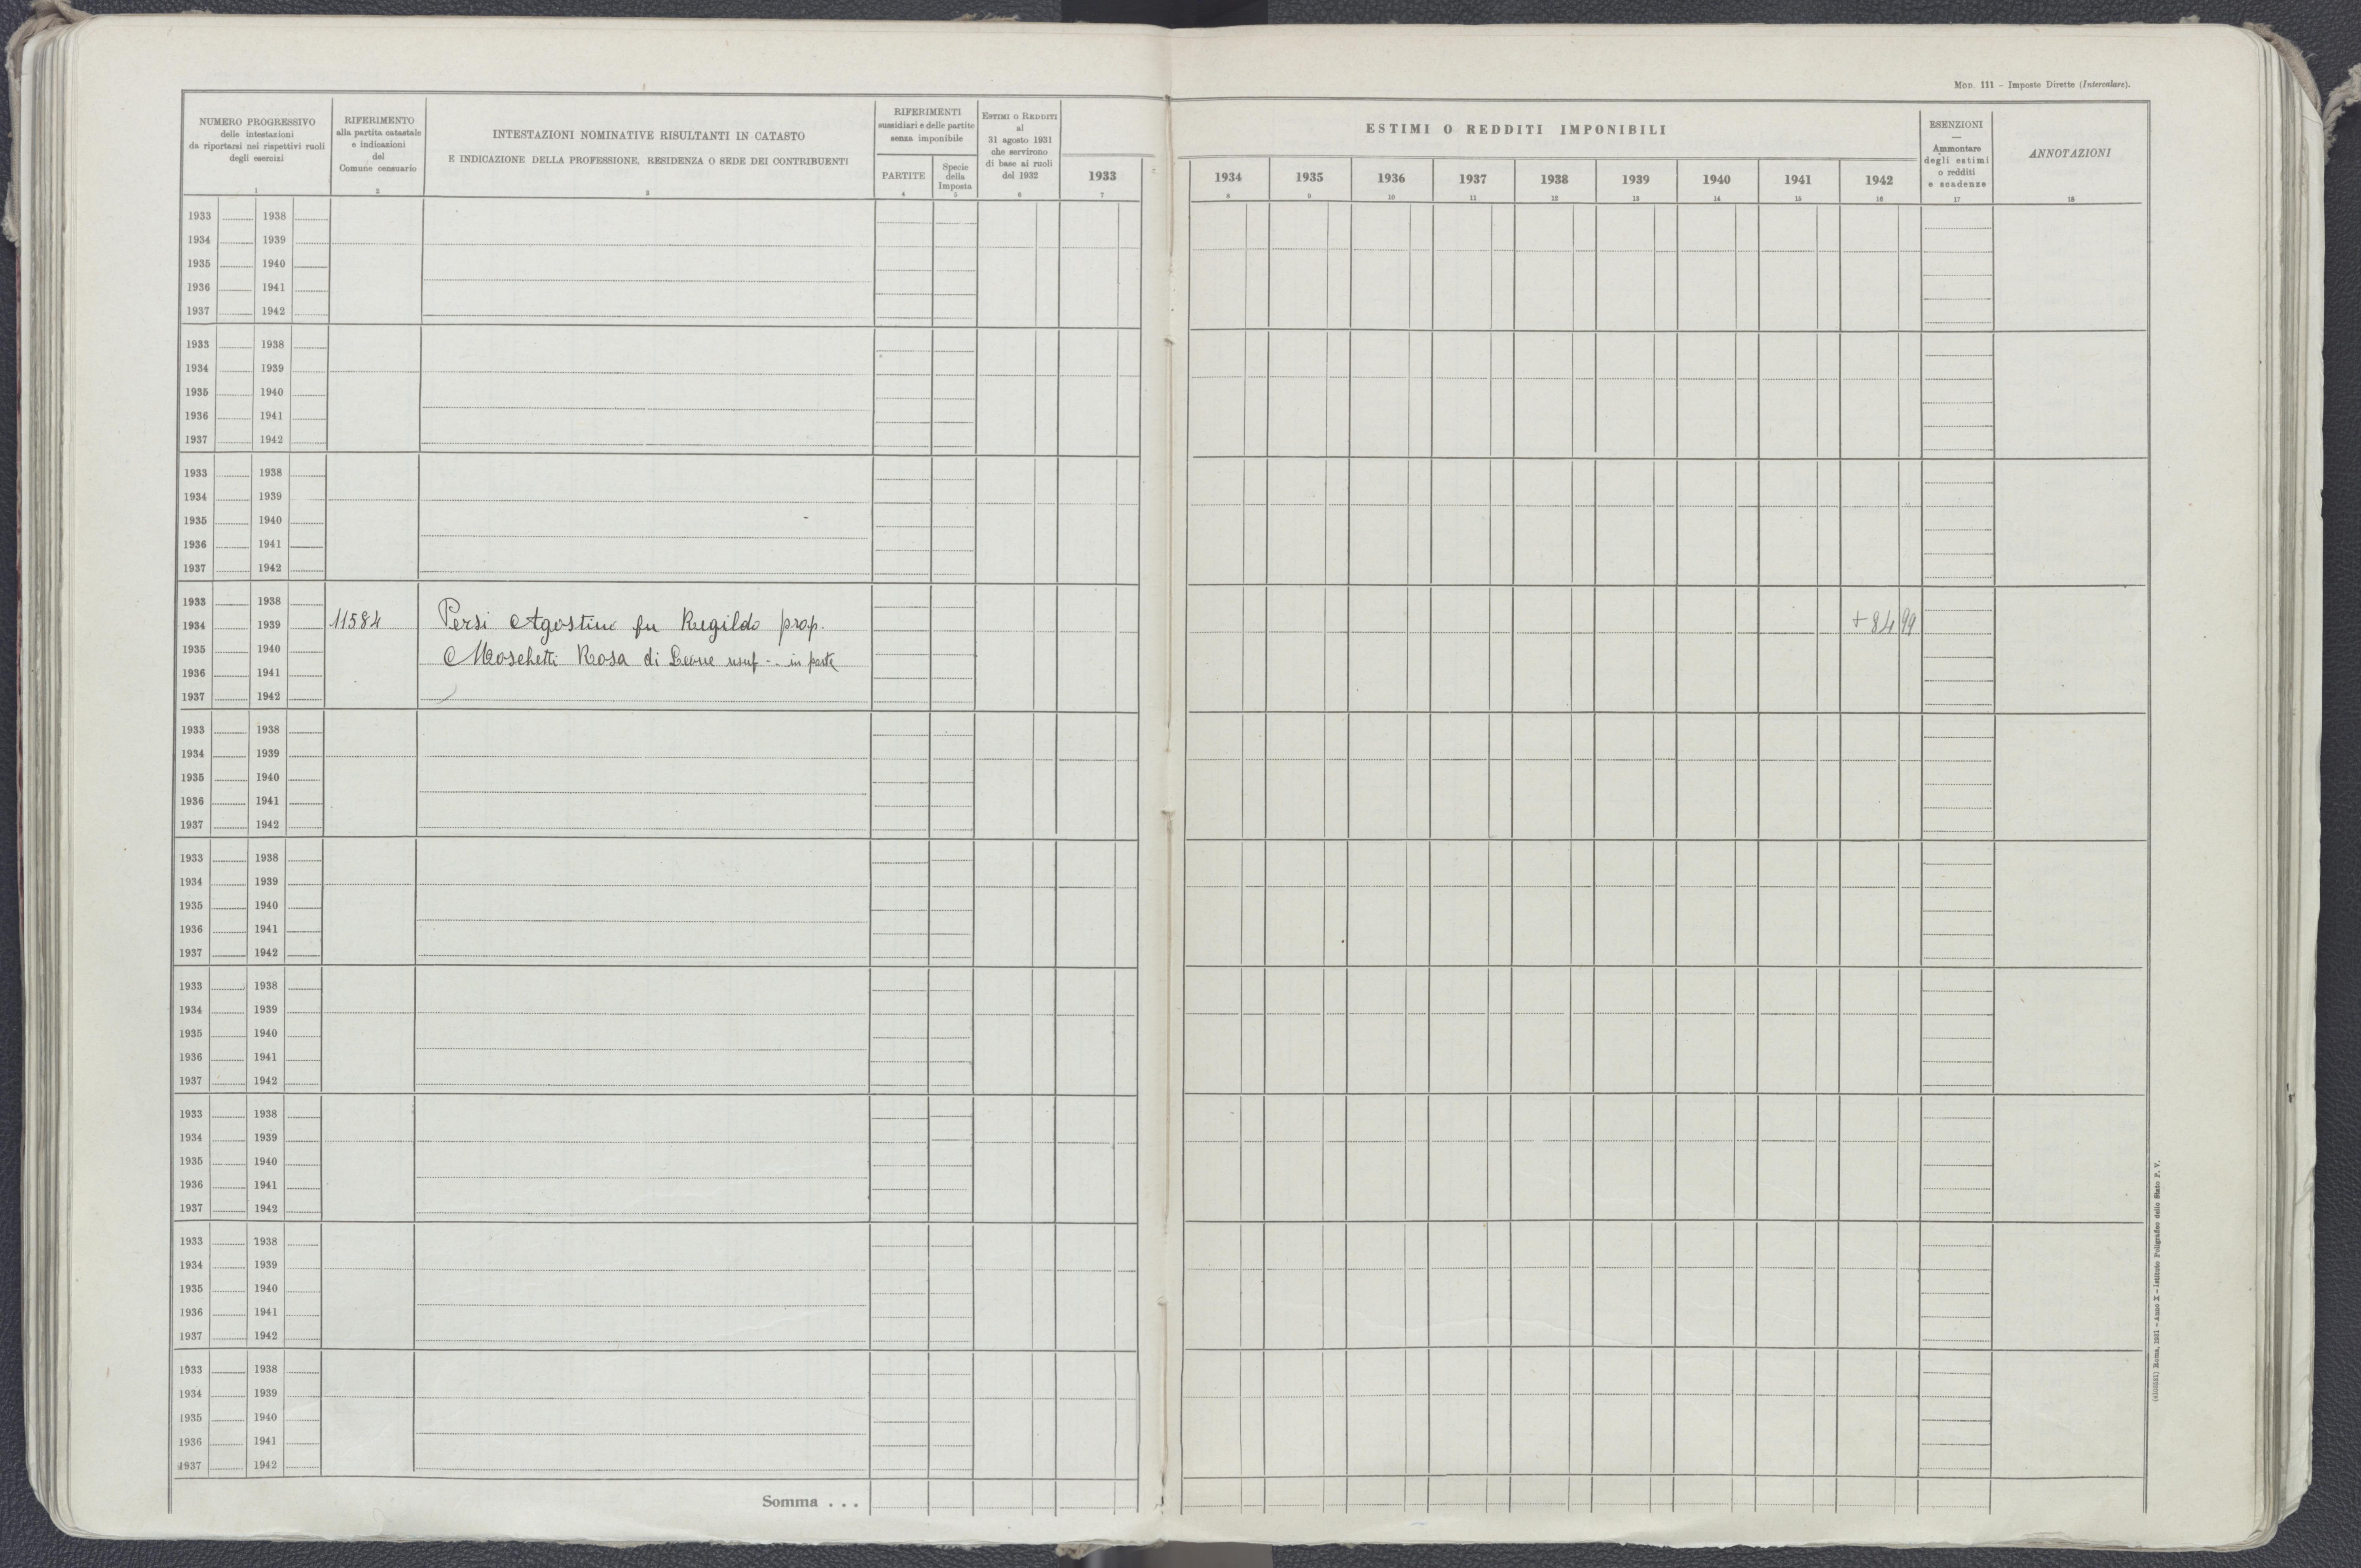 MOD. 111 – Imposte Dirette (Intercalare).
NUMERO PROGRESSIVO
delle intestazioni
da riportarsi nei rispettivi ruoli
degli esercizi
1
RIFERIMENTO
alla partita catastale
e indicazioni
del
Comune censuario
2
INTESTAZIONI NOMINATIVE RISULTANTI IN CATASTO
E INDICAZIONE DELLA PROFESSIONE, RESIDENZA O SEDE DEI CONTRIBUENTI
3
RIFERIMENTI
sussidiari e delle partite
senza imponibile
PARTITE
4
Specie
della
Imposta
5
ESTIMI O REDDITI
al
31 agosto 1931
che servirono
di base ai ruoli
del 1932
6
1933
7
ESTIMI O REDDITI IMPONIBILI
1934 1935 1936 1937 1938 1939 1940 1941 1942
8 9 10 11 12 13 14 15 16
ESENZIONI
—
Ammontare
degli estimi
o redditi
e scadenze
17
ANNOTAZIONI
18
1933 1938
1934 1939
1935 1940
1936 1941
1937 1942
1933 1938
1934 1939
1935 1940
1936 1941
1937 1942
1933 1938
1934 1939
1935 1940
1936 1941
1937 1942
1933 1938
1934 1939 11584 Persi Agostino fu Regildo prop. + 84 99
1935 1940 Moschetti Rosa di Leone usuf -- in parte
1936 1941
1937 1942
1933 1938
1934 1939
1935 1940
1936 1941
1937 1942
1933 1938
1934 1939
1935 1940
1936 1941
1937 1942
1933 1938
1934 1939
1935 1940
1936 1941
1937 1942
1933 1938
1934 1939
1935 1940
1936 1941
1937 1942
1933 1938
1934 1939
1935 1940
1936 1941
1937 1942
1933 1938
1934 1939
1935 1940
1936 1941
1937 1942
Somma . . .
Roma, 1931 – Anno X – Istituto Poligrafico dello Stato P. V.